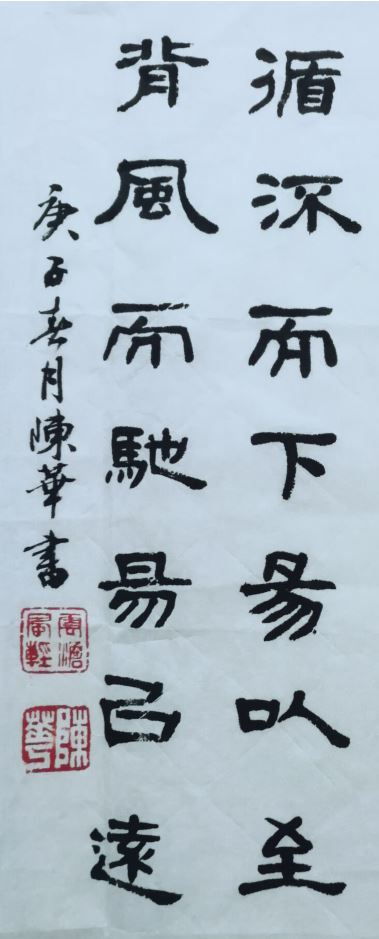 循流而下易以至
背風而馳易㠯遠
庚子春月陳華書
雲澹風輕
陳華